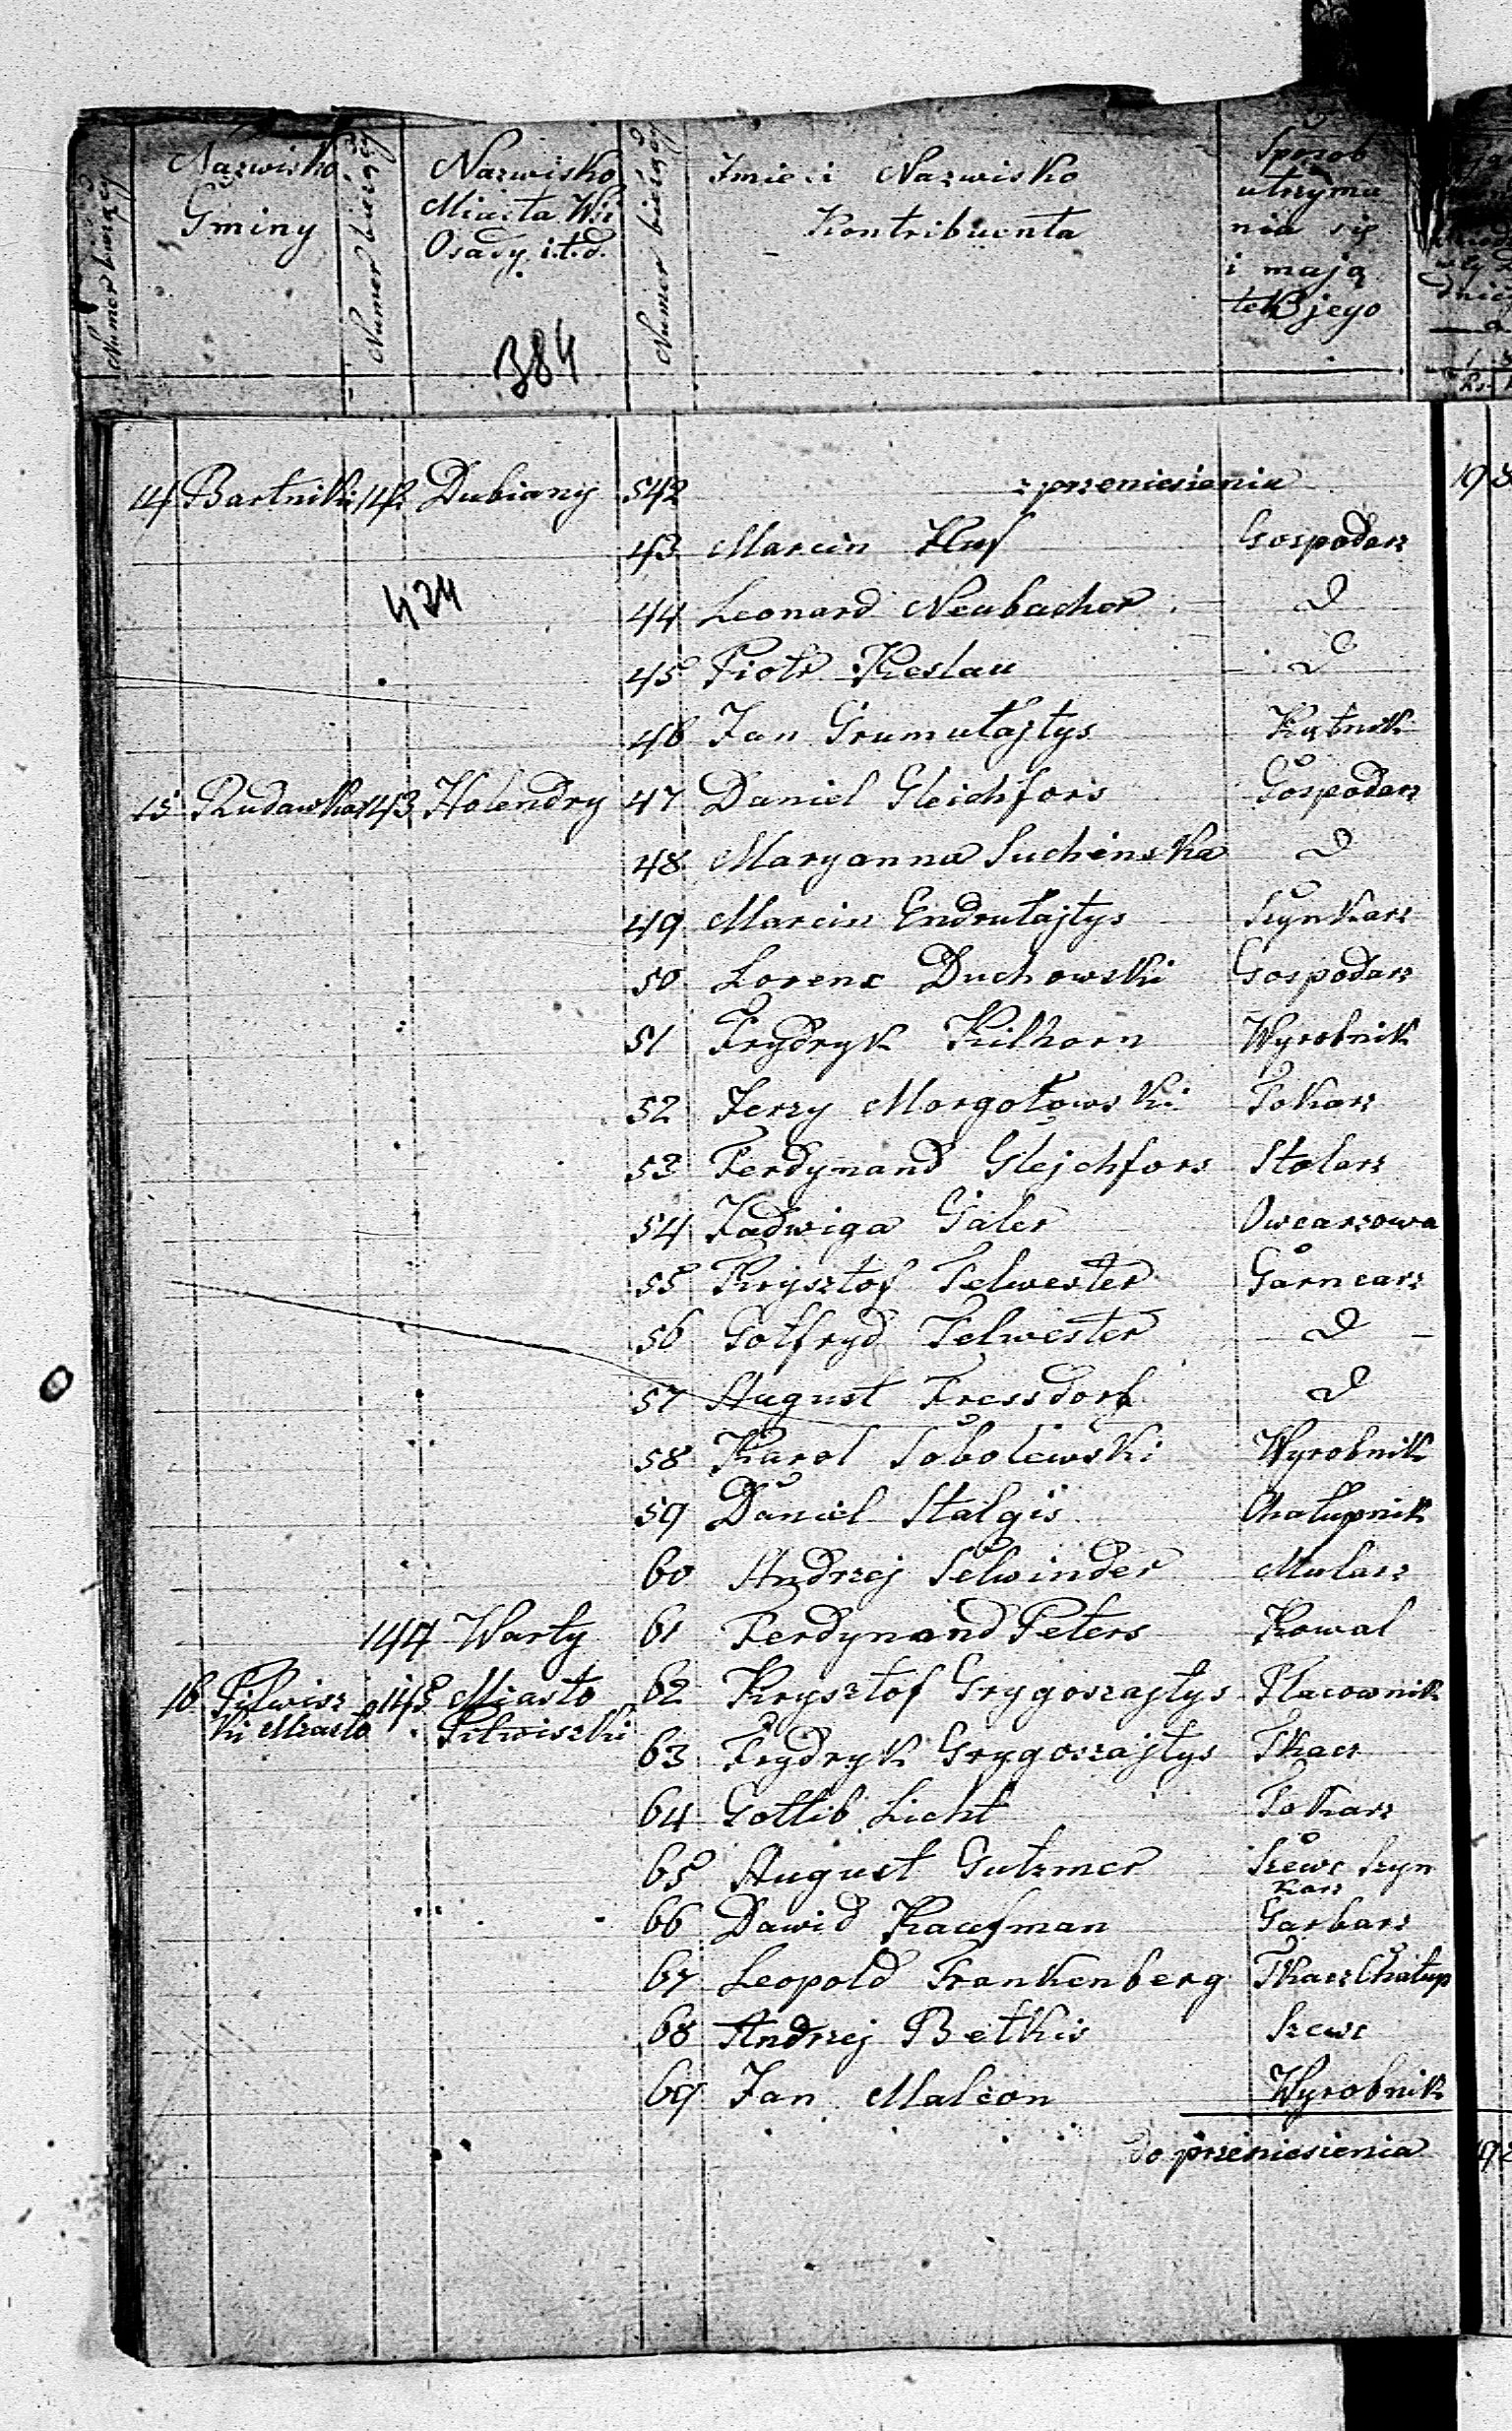 Numer bieżący
Nazwisko
Gminy
Numer bieżący
Nazwisko
Miasta Wsi
Osady i.t.d.
384
Numer bieżący
Imie i Nazwisko
Kontribuenta
Sposob
utrzyma
nia się
i mają
tek jego
14 Bartniki 142 Dubiany 542 z przeniesienia
43 Marcin Huf Gospodarz
424
44 Leonard Neubacher D
45 Piotr Keslau D
46 Jan Grumutajtys Kątnik
15 Rudawka 143 Holendry 47 Daniel Gleichfors Gospodarz
48 Maryanna Suchinska D
49 Marcin Endrutajtys Szynkarz
50 Lorenc Duchowski Gospodarz
51 Frydryk Kilhorn Wyrobnik
52 Jerzy Morgołowski Tokarz
53 Ferdynand Glejchfors Stolarz
54 Jadwiga Galer Owcarzowa
55 Krysztof Felwester Garncarz
56 Gotfryd Felwester D
57 August Fressdorf D
58 Karol Sobolewski Wyrobnik
59 Daniel Stalgis Chałupnik
60 Andrzej Selwinder Mularz
144 Warty 61 Ferdynand Peters Kowal
16 Pilwisz 145 Miasto 62 Krysztof Grygoszajtys Placownik
ki Miasto Pilwiszki
63 Frydryk Grygoszajtys Tkacz
64 Gotlib Licht Tokarz
65 August Gutzmer Szewc Szyn
karz
66 Dawid Kaufman Garbarz
67 Leopold Frankenberg Tkacz Chałup
68 Andrzej Betkis Szewc
69 Jan Malzon Wyrobnik
do przeniesienia